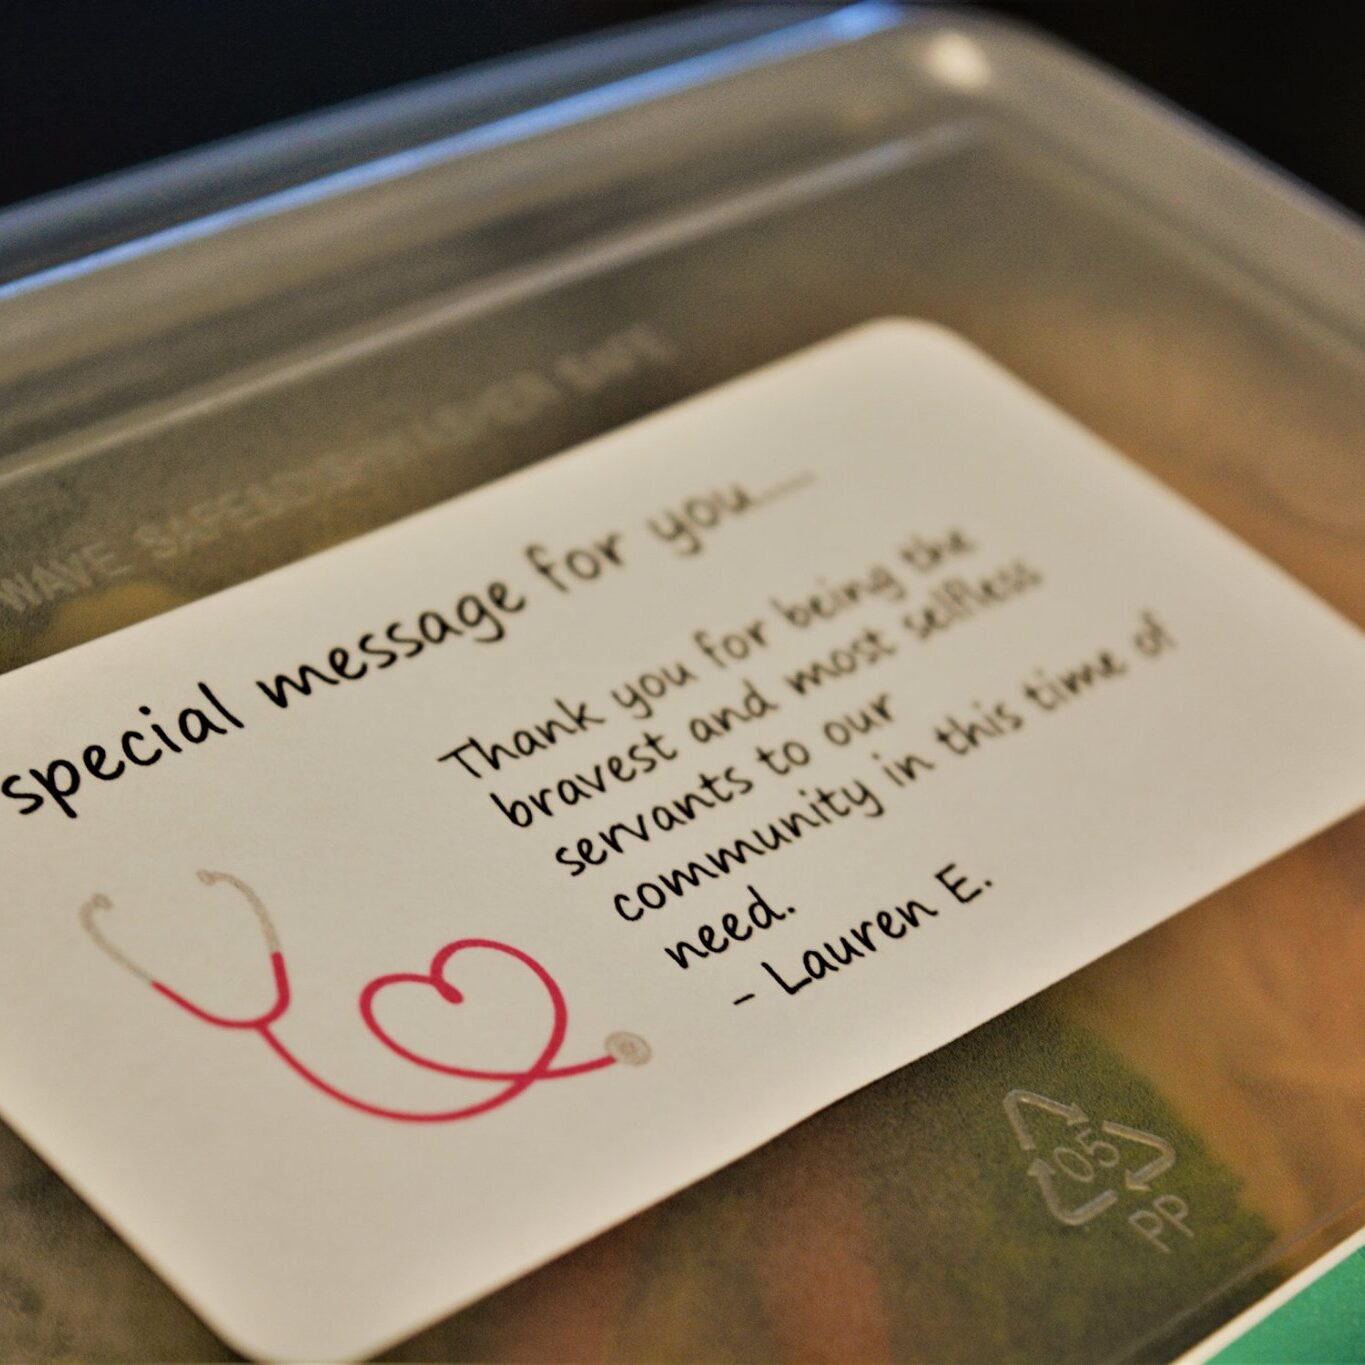 WAVE SAFE
special message for you....
Thank you for being the
bravest and most selfless
servants to our
community in this time of
need.
- Lauren E.
05
PP